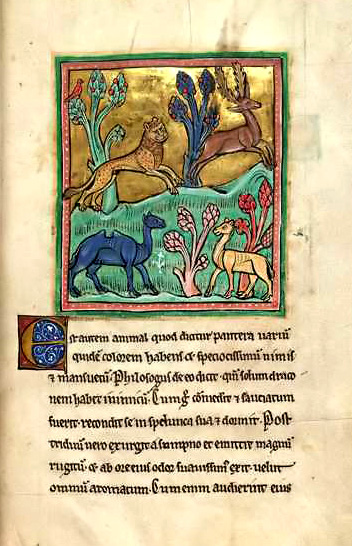 Est autem animal quod dicitur pantera uariū
quidē colorem habens et speciosissimū nimis
et mansuetū. Phisologus de eo dicit. qm̄ solum draco
nem habet inimicū. Cumq; comederit et saciatum
fuerit. recondit se in spelunca sua et dormit. Post
triduum uero exurgit a sompno et emittit magnū
rugitū. et ab ore eius odor suauissimꝰ exit. uelut
omniū aromatum. Cum enim audierint eius